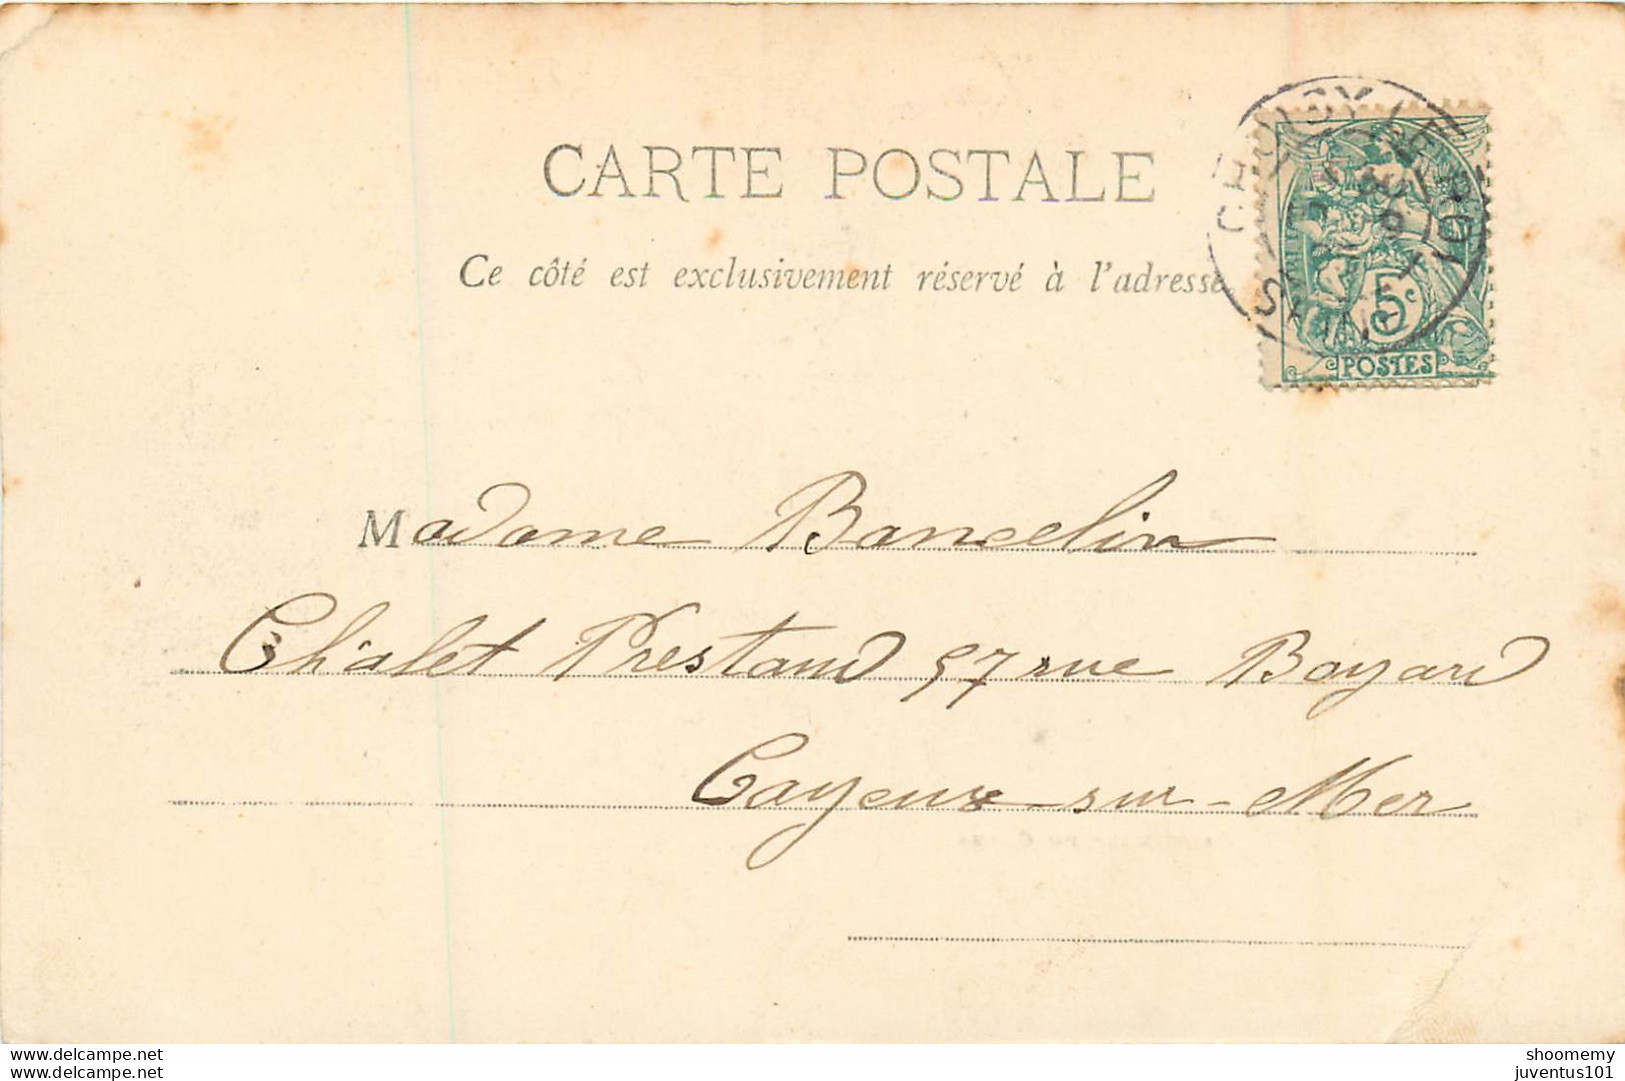 CARTE POSTALE
Ce côté est exclusivement réservé à l'adresse.
CHOISY-LE-ROI
SEINE
5c
POSTES
Madame Bancelin
Chalet Prestaud 57 rue Bayard
Cayeux-sur-Mer
www.delcampe.net
www.delcampe.net
shoomemy
juventus101